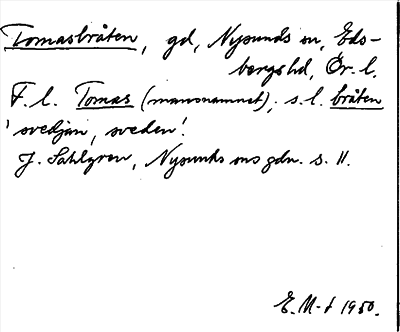 Tomasbråten, gd, Nysunds sn, Eds-
bergs hd, Ör. l.
F. l. Tomas (mansnamnet), s. l. bråten
'svedjan, sveden'.
J. Sahlgren, Nysunds sns gdn. s. 11.
E. M-t 1950.